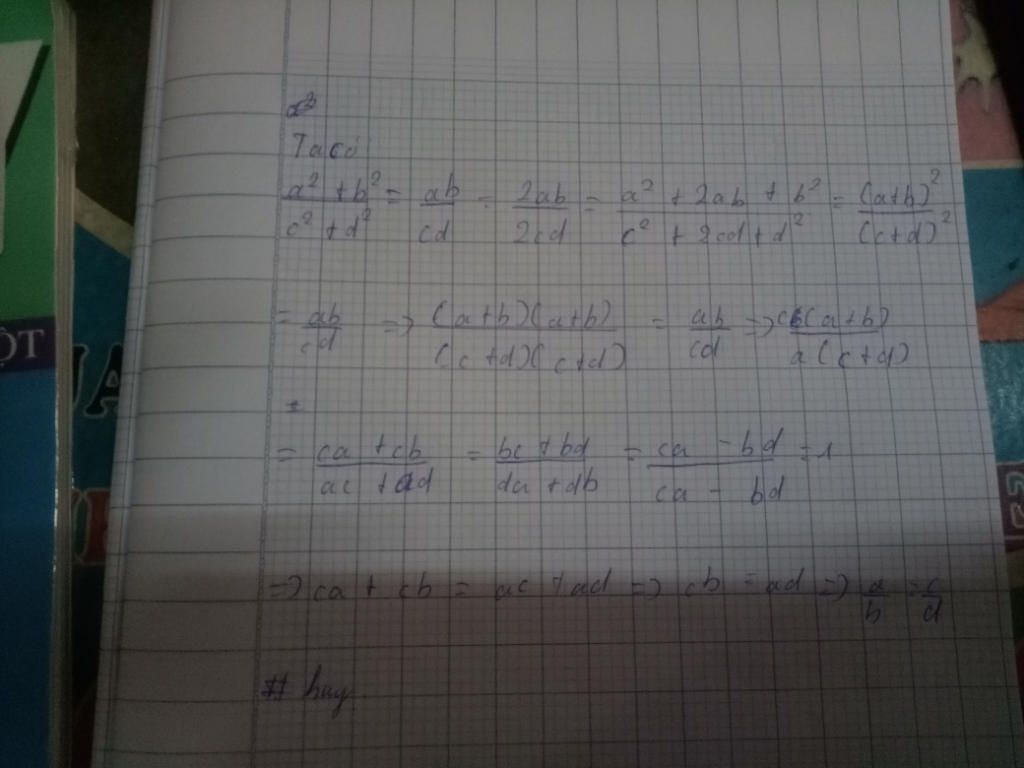 a²
Ta có
a² + b² / c² + d² = ab / cd = 2ab / 2cd = a² + 2ab + b² / c² + 2cd + d² = (a+b)² / (c+d)²
= ab / cd => (a+b)(a+b) / (c+d)(c+d) = ab / cd => c(a+b) / a(c+d)
= ca + cb / ac + ad = bc + bd / da + db = ca - bd / ca - bd = 1
=> ca + cb = ac + ad => cb = ad => a / b = c / d
# hay
ỘT